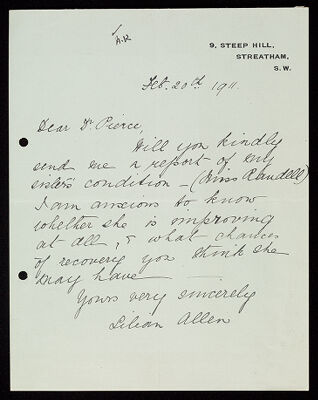 A.R
9, STEEP HILL,
STREATHAM,
S.W.
Feb. 20th 1911.
Dear Dr Pierce,
Will you kindly
send me a report of my
sister's condition - (Miss Randell)
I am anxious to know
whether she is improving
at all, & what chances
of recovery you think she
may have
Yours very sincerely
Lilian Allen